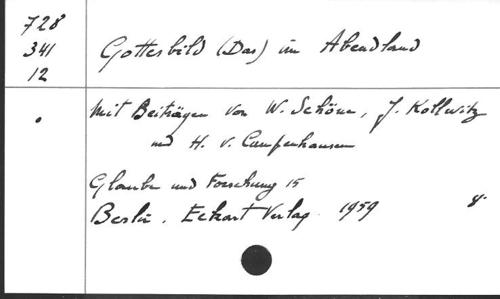 728
341
12
Gottesbild (Das) im Abendland
Mit Beiträgen von W. Schöne, J. Kollwitz
und H. v. Campenhausen
Glaube und Forschung 15
Berlin, Eckart Verlag. 1959 8°